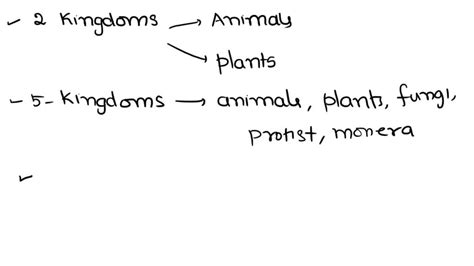 ✓ 2 Kingdoms → Animals
→ plants
✓ 5- Kingdoms → animals, plants, fungi,
protist, monera
✓